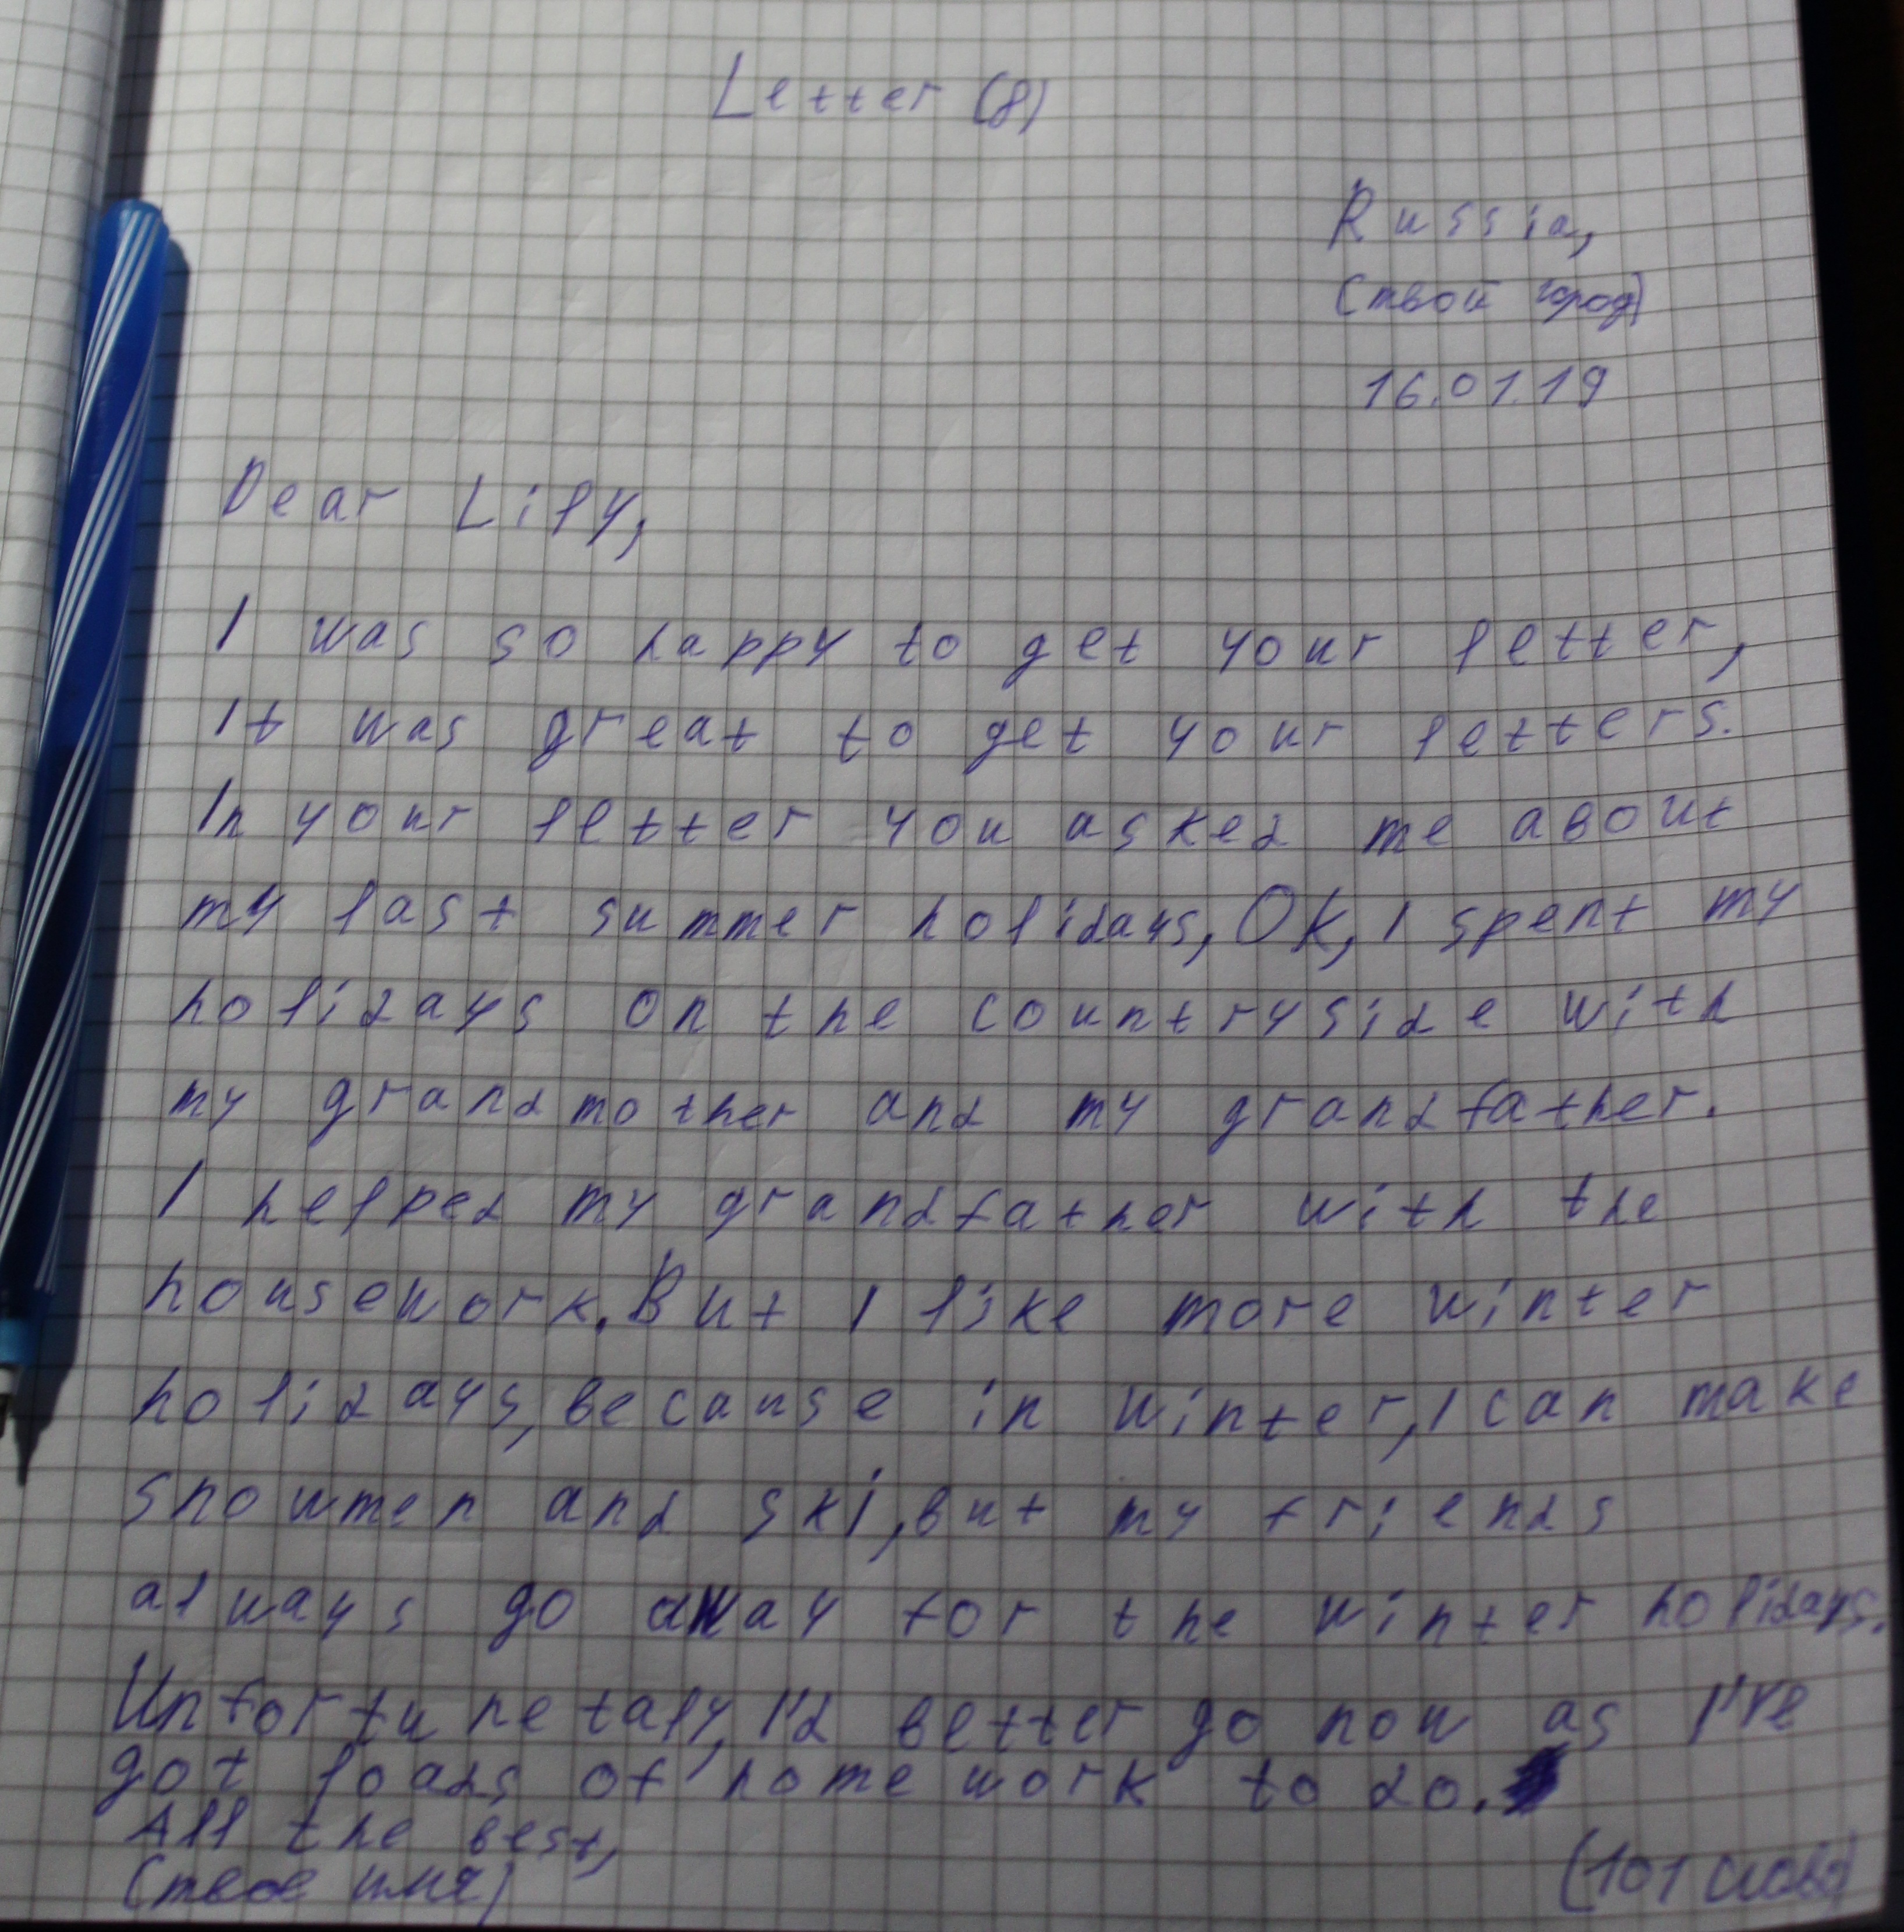 Letter (8)
Russia,
(твой город)
16.01.19
Dear Lily,
I was so happy to get your letter,
It was great to get your letters.
In your letter you asked me about
my last summer holidays, Ok, I spent my
holidays on the countryside with
my grandmother and my grandfather.
I helped my grandfather with the
housework. But I like more winter
holidays, because in winter, I can make
snowmen and ski, but my friends
always go away for the winter holidays.
Unfortunetaly, I'd better go now as I've
got loads of homework to do.
All the best,
(твое имя)
(101 слово)